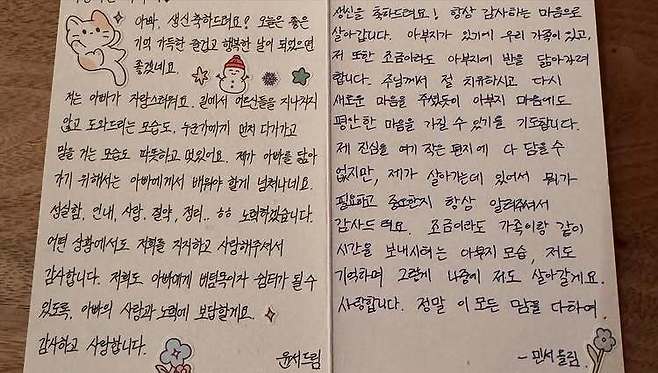 아빠, 생신축하드려요! 오늘은 좋은
기억 가득한 즐겁고 행복한 날이 되었으면
좋겠네요.
저는 아빠가 자랑스러워요. 길에서 어르신들을 지나치지
않고 도와드리는 모습도, 누군가에게 먼저 다가가고
말을 거는 모습도 따뜻하고 멋있어요. 제가 아빠를 닮아
가기 위해서는 아빠에게서 배워야 할게 넘쳐나네요.
성실함, 인내, 사랑, 절약, 정리.. ㅎㅎ 노력하겠습니다.
어떤 상황에서도 저희를 지지하고 사랑해주셔서
감사합니다. 저희도 아빠에게 버팀목이자 쉼터가 될 수
있도록, 아빠의 사랑과 노력에 보답할게요.
감사하고 사랑합니다.
윤서드림
생신을 축하드려요! 항상 감사하는 마음으로
살아갑니다. 아부지가 있기에 우리 가족이 있고,
저 또한 조금이라도 아부지에 반을 닮아가려
합니다. 주님께서 절 치유하시고 다시
새로운 마음을 주셨듯이 아부지 마음에도
평안한 마음을 가질 수 있기를 기도합니다.
제 진심을 여기 작은 편지에 다 담을 수
없지만, 제가 살아가는데 있어서 뭐가
필요하고 중요한지 항상 알려주셔서
감사드려요. 조금이라도 가족이랑 같이
시간을 보내시려는 아부지 모습, 저도
기억하며 그렇게 나중에 저도 살아갈게요.
사랑합니다. 정말 이 모든 맘을 다하여
- 민서 올림